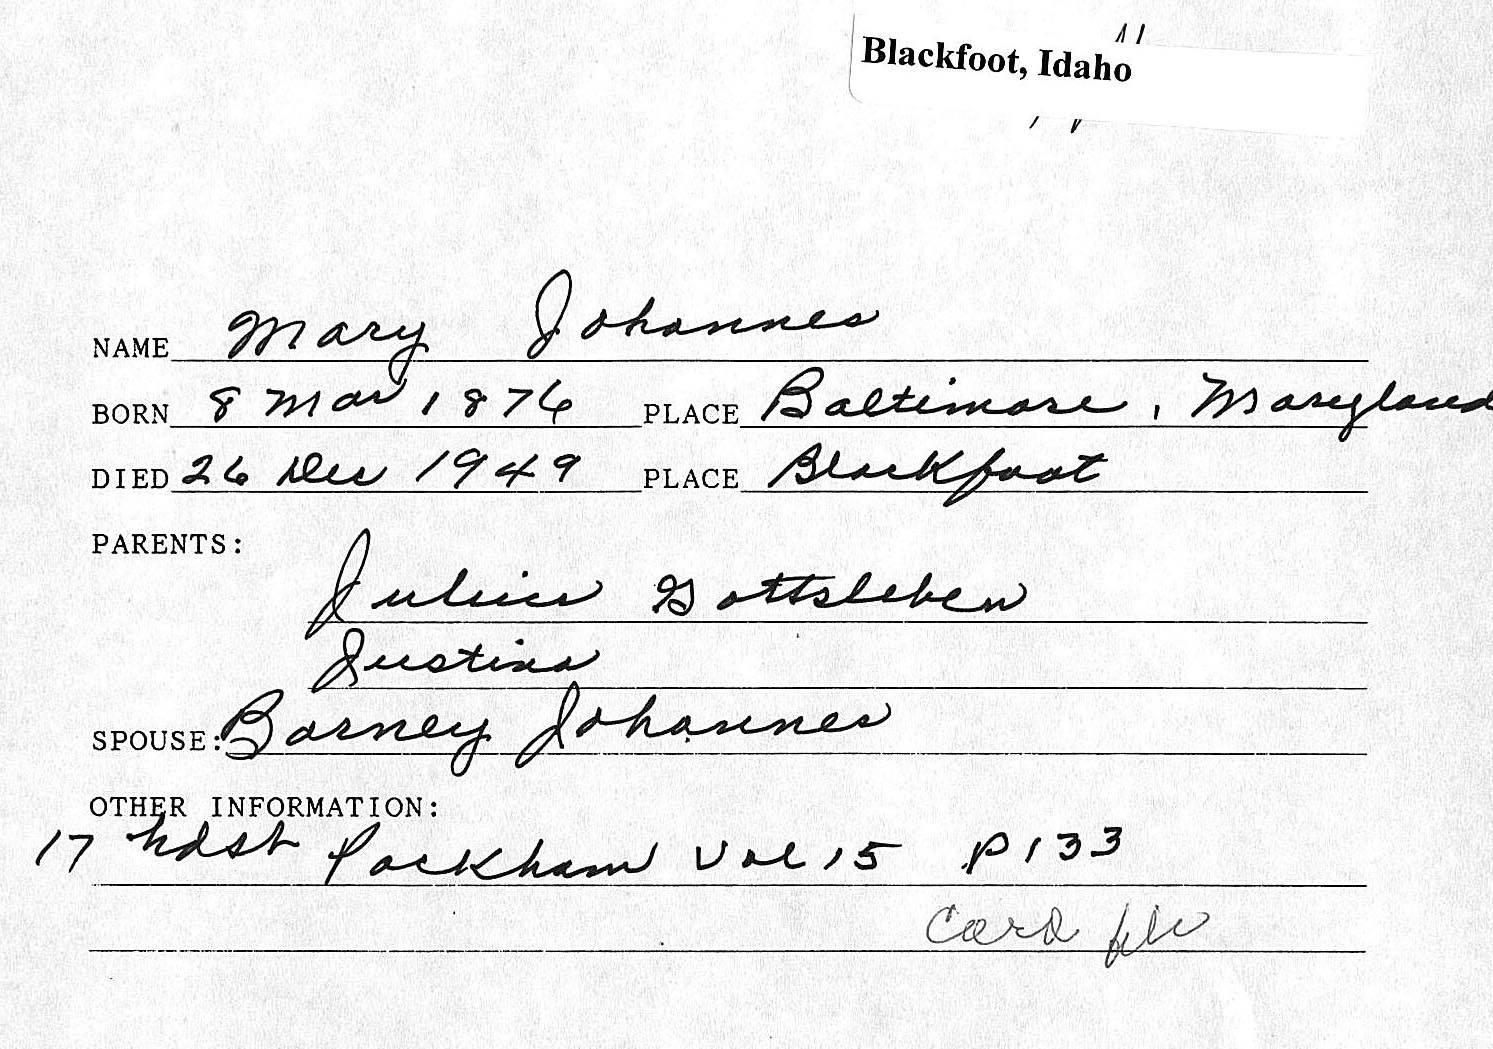 Blackfoot, Idaho
NAME Mary Johannes
BORN 8 Mar 1876 PLACE Baltimore, Maryland
DIED 26 Dec 1949 PLACE Blackfoot
PARENTS:
Julius Gottsleben
Justina
SPOUSE: Barney Johannes
OTHER INFORMATION:
17 hdst Packham Vol 15 P133
Card file